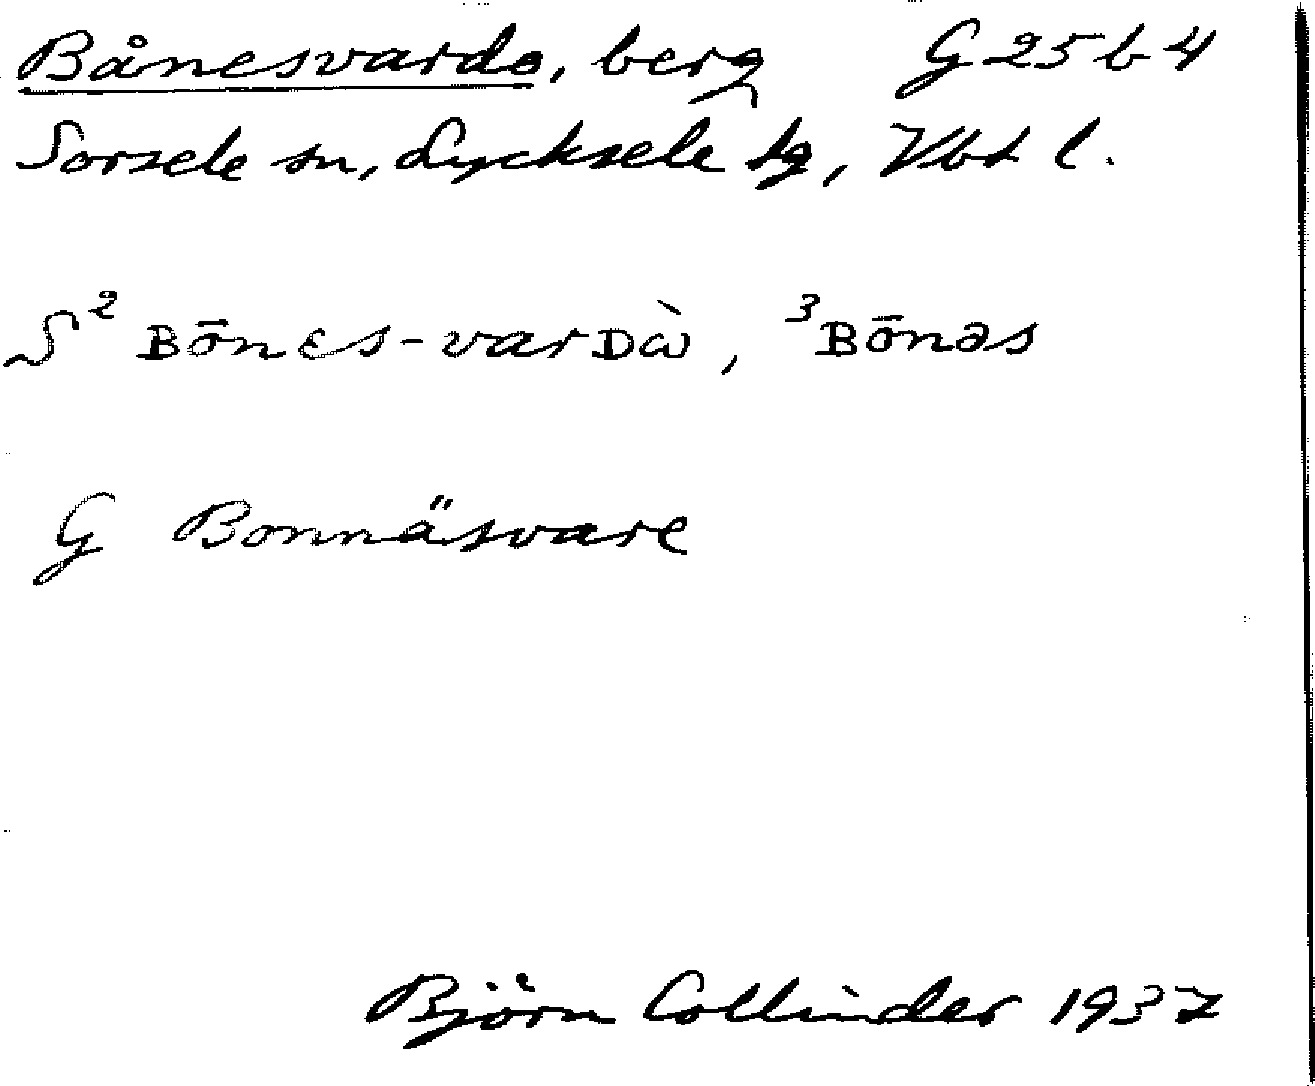 Bånesvardo, berg G 25 b 4
Sorsele sn, Lycksele lg, Vbt l.
S ² ʙōnɛs-varᴅὼ, ³ʙōnəs
G Bonnäsvare
Björn Collinder 1937